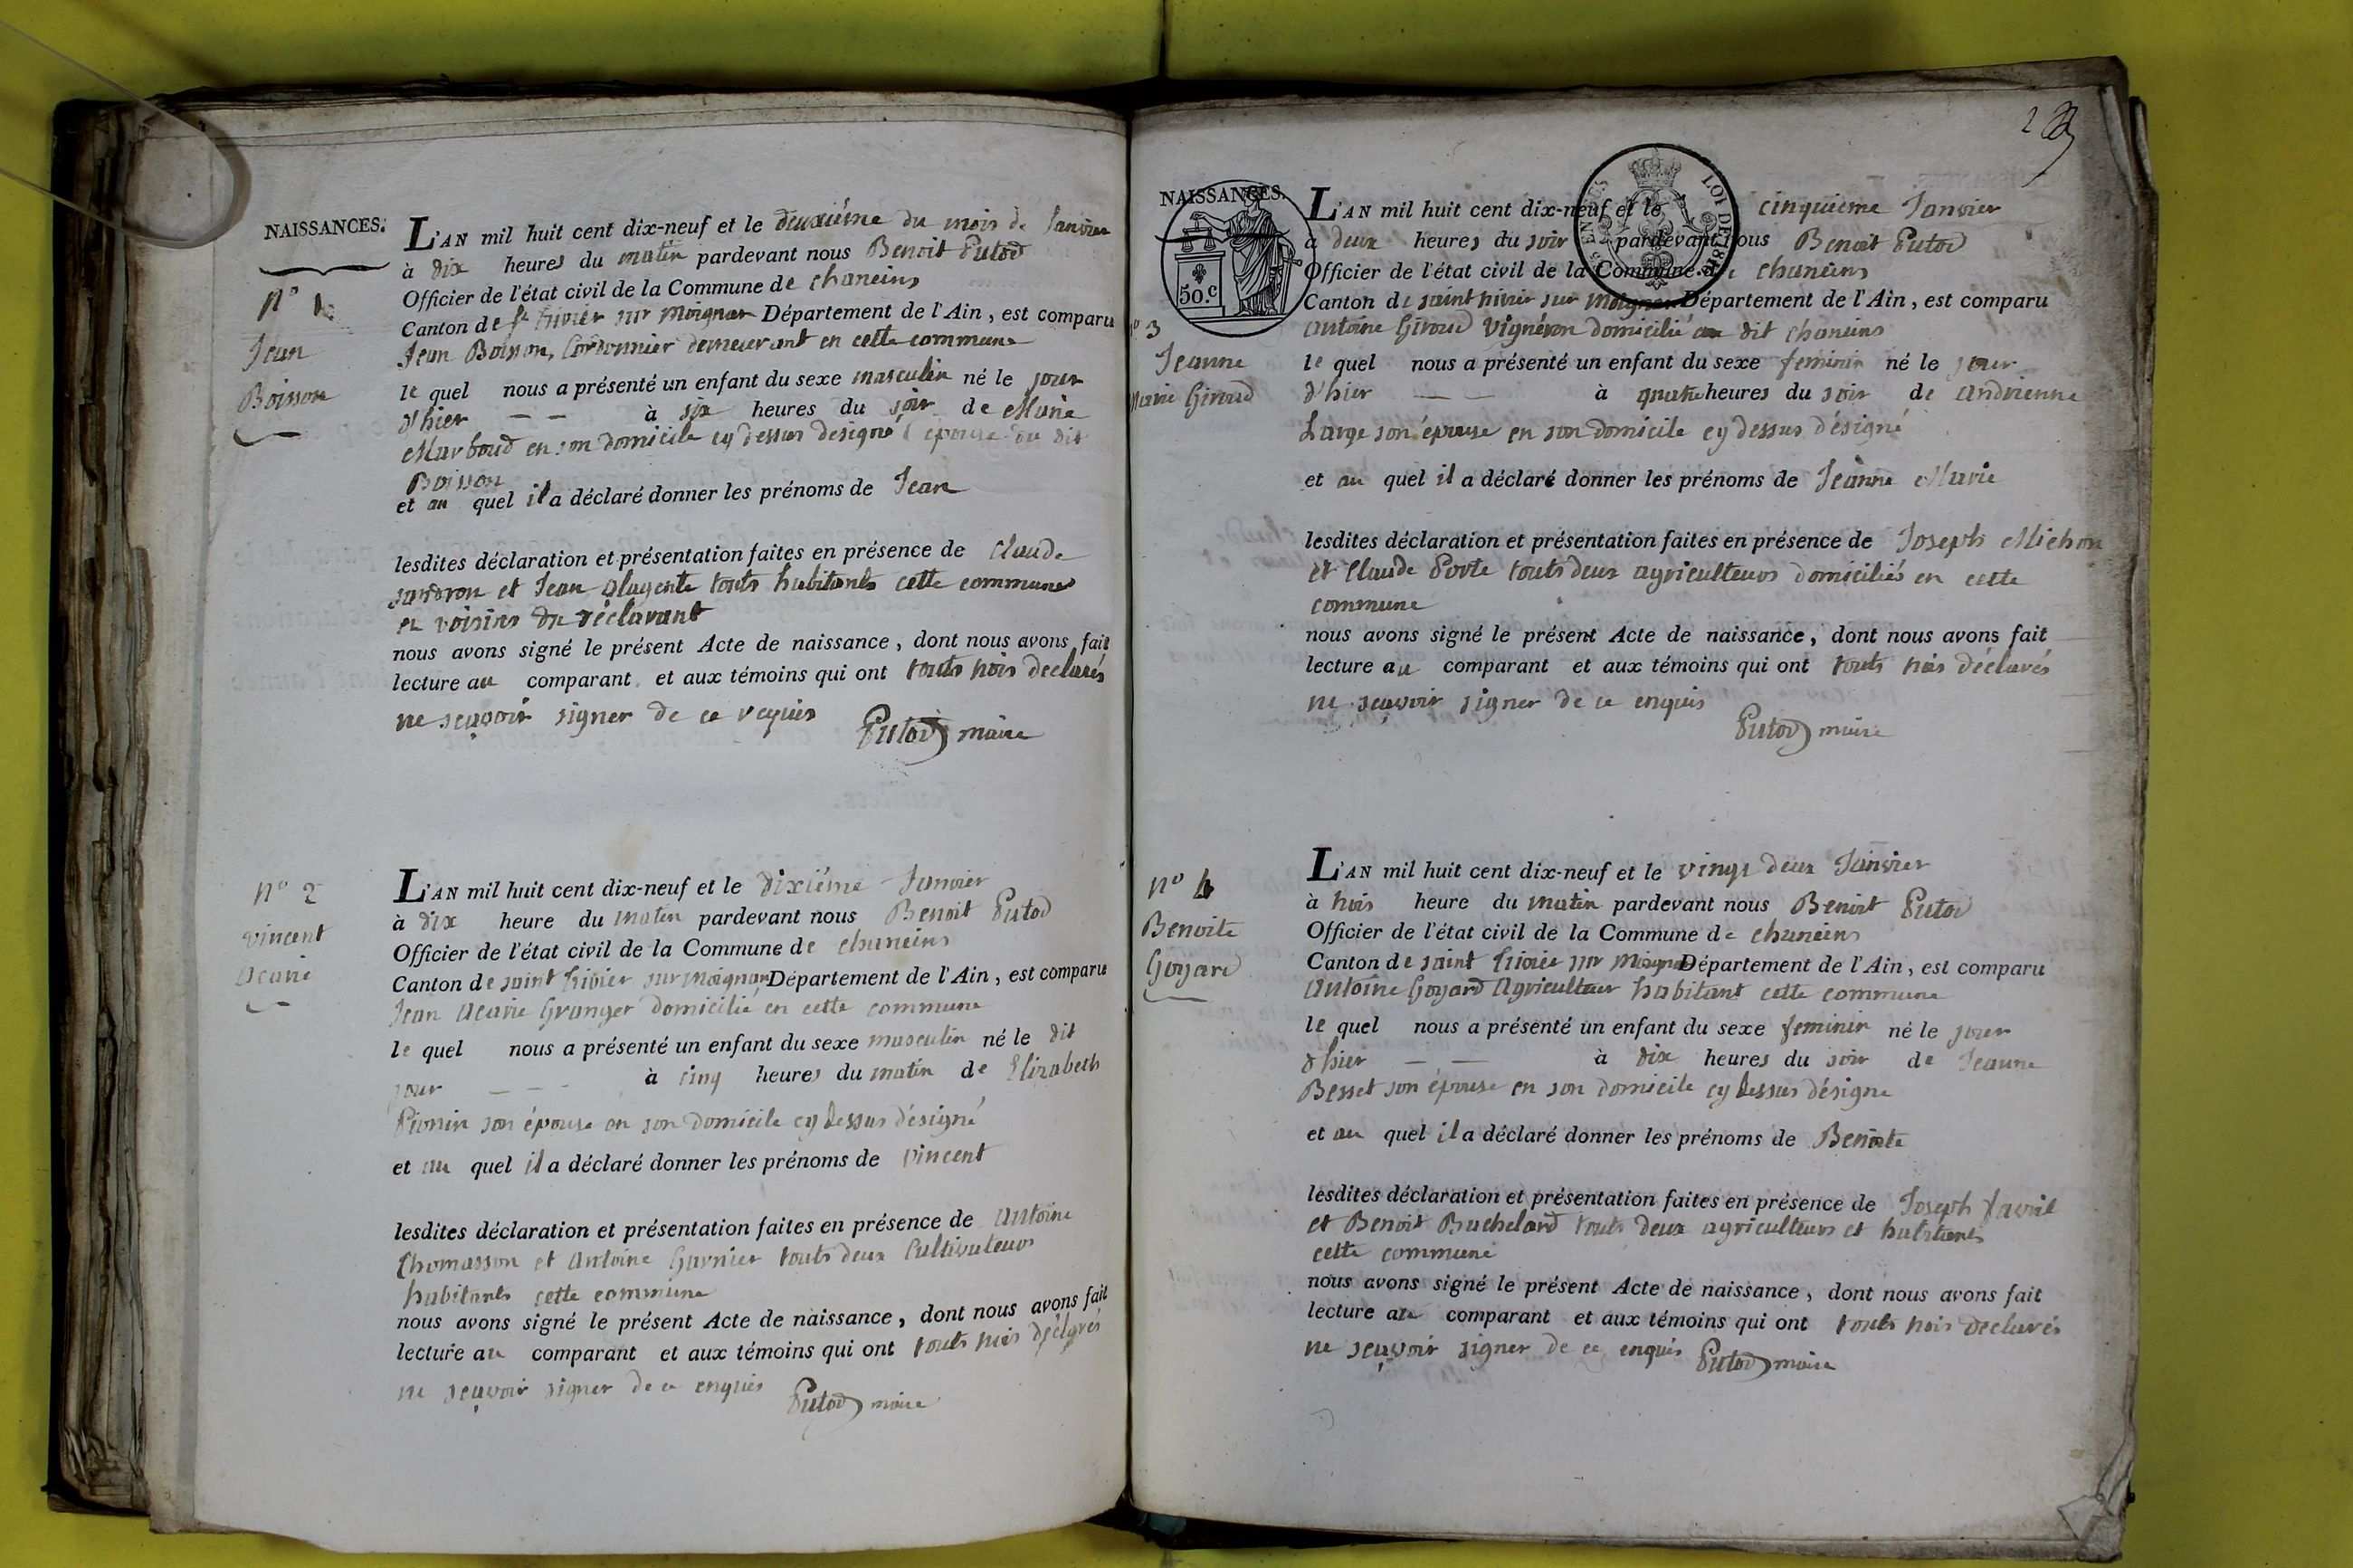 NAISSANCES.
N° 1
Jean
Boisson
L'AN mil huit cent dix-neuf et le deuxiéme du mois de Janvier
à dix heures du matin pardevant nous Benoit Putod
Officier de l'état civil de la Commune de chaneins
Canton de St trivier sur moignan Département de l'Ain, est comparu
Jean Boisson, Cordonnier demeurant en cette commune
le quel nous a présenté un enfant du sexe masculin né le jour
d'hier — — à six heures du soir de Marie
Marboud en son domicile cy dessus designé épouse du dit
Boisson
et au quel il a déclaré donner les prénoms de Jean
lesdites déclaration et présentation faites en présence de Claude
et Jean touts habitants cette commune
et voisins du
nous avons signé le présent Acte de naissance, dont nous avons fait
lecture au comparant et aux témoins qui ont touts trois declarés
ne sçavoir signer de ce requis
Putod maire
N° 2
vincent
acarie
L'AN mil huit cent dix-neuf et le dixiéme Janvier
à dix heure du matin pardevant nous Benoit Putod
Officier de l'état civil de la Commune de chaneins
Canton de saint trivier sur moignan Département de l'Ain, est comparu
Jean acarie Granger domicilié en cette commune
le quel nous a présenté un enfant du sexe masculin né le dit
jour — — à cinq heures du matin de Elizabeth
son épouse en son domicile cy dessus désigné
et au quel il a déclaré donner les prénoms de vincent
lesdites déclaration et présentation faites en présence de antoine
thomasson et antoine Garnier touts deux Cultivateurs
habitants cette commune
nous avons signé le présent Acte de naissance, dont nous avons fait
lecture au comparant et aux témoins qui ont touts trois déclarés
ne sçavoir signer de ce enquis
Putod maire
NAISSANCES.
50.c
LOI DE 1816
N° 3
Jeanne
Marie Giroud
L'AN mil huit cent dix-neuf et le cinquieme Janvier
à deux heures du soir pardevant nous Benoit Putod
Officier de l'état civil de la Commune de chaneins
Canton de saint trivier sur moignan Département de l'Ain, est comparu
antoine Giroud vignéron domicilié au dit chaneins
le quel nous a présenté un enfant du sexe feminin né le jour
d'hier — — à quatre heures du soir de andrienne
Large son épouse en son domicile cy dessus désigné
et au quel il a déclaré donner les prénoms de Jeanne Marie
lesdites déclaration et présentation faites en présence de Joseph Michon
et Claude touts deux agriculteurs domiciliés en cette
commune
nous avons signé le présent Acte de naissance, dont nous avons fait
lecture au comparant et aux témoins qui ont touts trois déclarés
ne sçavoir signer de ce enquis
Putod maire
N° 4
Benoite
Goyard
L'AN mil huit cent dix-neuf et le vingt deux Janvier
à trois heure du matin pardevant nous Benoit Putod
Officier de l'état civil de la Commune de chaneins
Canton de saint trivier sur moignan Département de l'Ain, est comparu
antoine Goyard agriculteur habitant cette commune
le quel nous a présenté un enfant du sexe feminin né le jour
d'hier — — à dix heures du soir de Jeanne
Besset son épouse en son domicile cy dessus désigne
et au quel il a déclaré donner les prénoms de Benoite
lesdites déclaration et présentation faites en présence de Joseph
et Benoit Buchelard touts deux agriculteurs et habitants
cette commune
nous avons signé le présent Acte de naissance, dont nous avons fait
lecture au comparant et aux témoins qui ont touts trois declarés
ne sçavoir signer de ce enquis Putod maire